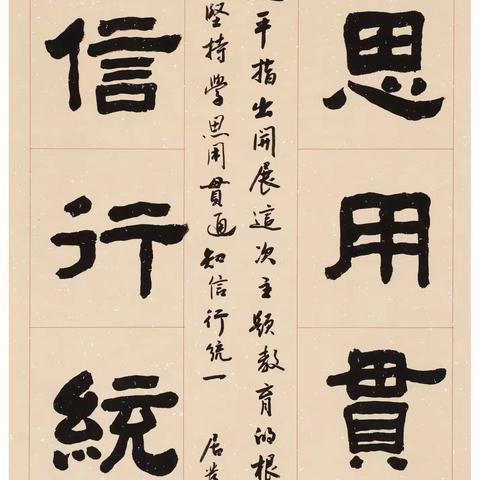 思用貫
平指出開展這次主題教育的根
堅持學思用貫通知信行統一 居
信行統